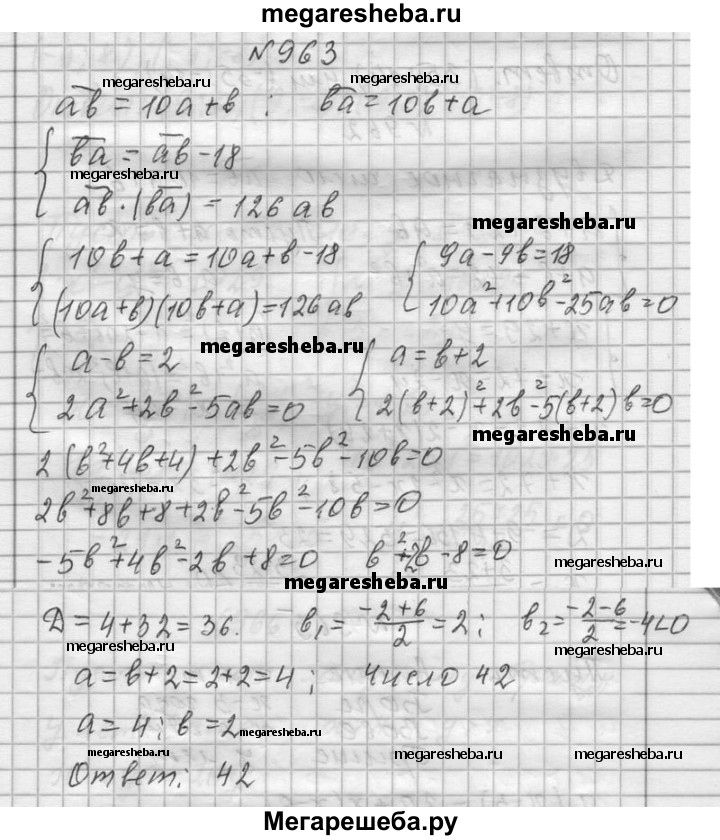 megaresheba.ru
N963
megaresheba.ru megaresheba.ru
ab = 10a+b ; ba = 10b+a
ba = ab - 18
megaresheba.ru
ab · (ba) = 126 ab
megaresheba.ru
10b + a = 10a+b-18 9a-9b=18
(10a+b)(10b+a)=126ab 10a²+10b²-25ab=0
a-b=2 megaresheba.ru a=b+2
2a²+2b²-5ab=0 2(b+2)²+2b²-5(b+2)b=0
megaresheba.ru
2(b²+4b+4)+2b²-5b²-10b=0
megaresheba.ru
2b²+8b+8+2b²-5b²-10b=0
-5b²+4b²-2b+8=0 b²+2b-8=0 megaresheba.ru
megaresheba.ru
D=4+32=36. b₁=(-2+6)/2=2; b₂=(-2-6)/2=-4<0
megaresheba.ru megaresheba.ru
a=b+2=2+2=4; число 42
a=4; b=2
megaresheba.ru
megaresheba.ru megaresheba.ru megaresheba.ru
Ответ: 42
Мегарешеба.ру